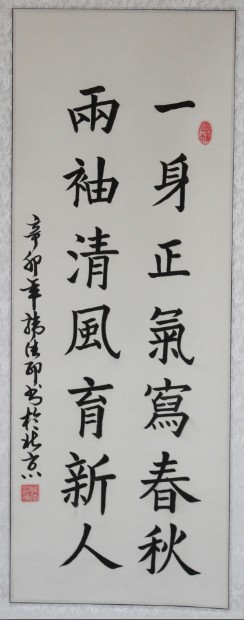 一身正氣寫春秋
兩袖清風育新人
辛卯年韓法印書於北京